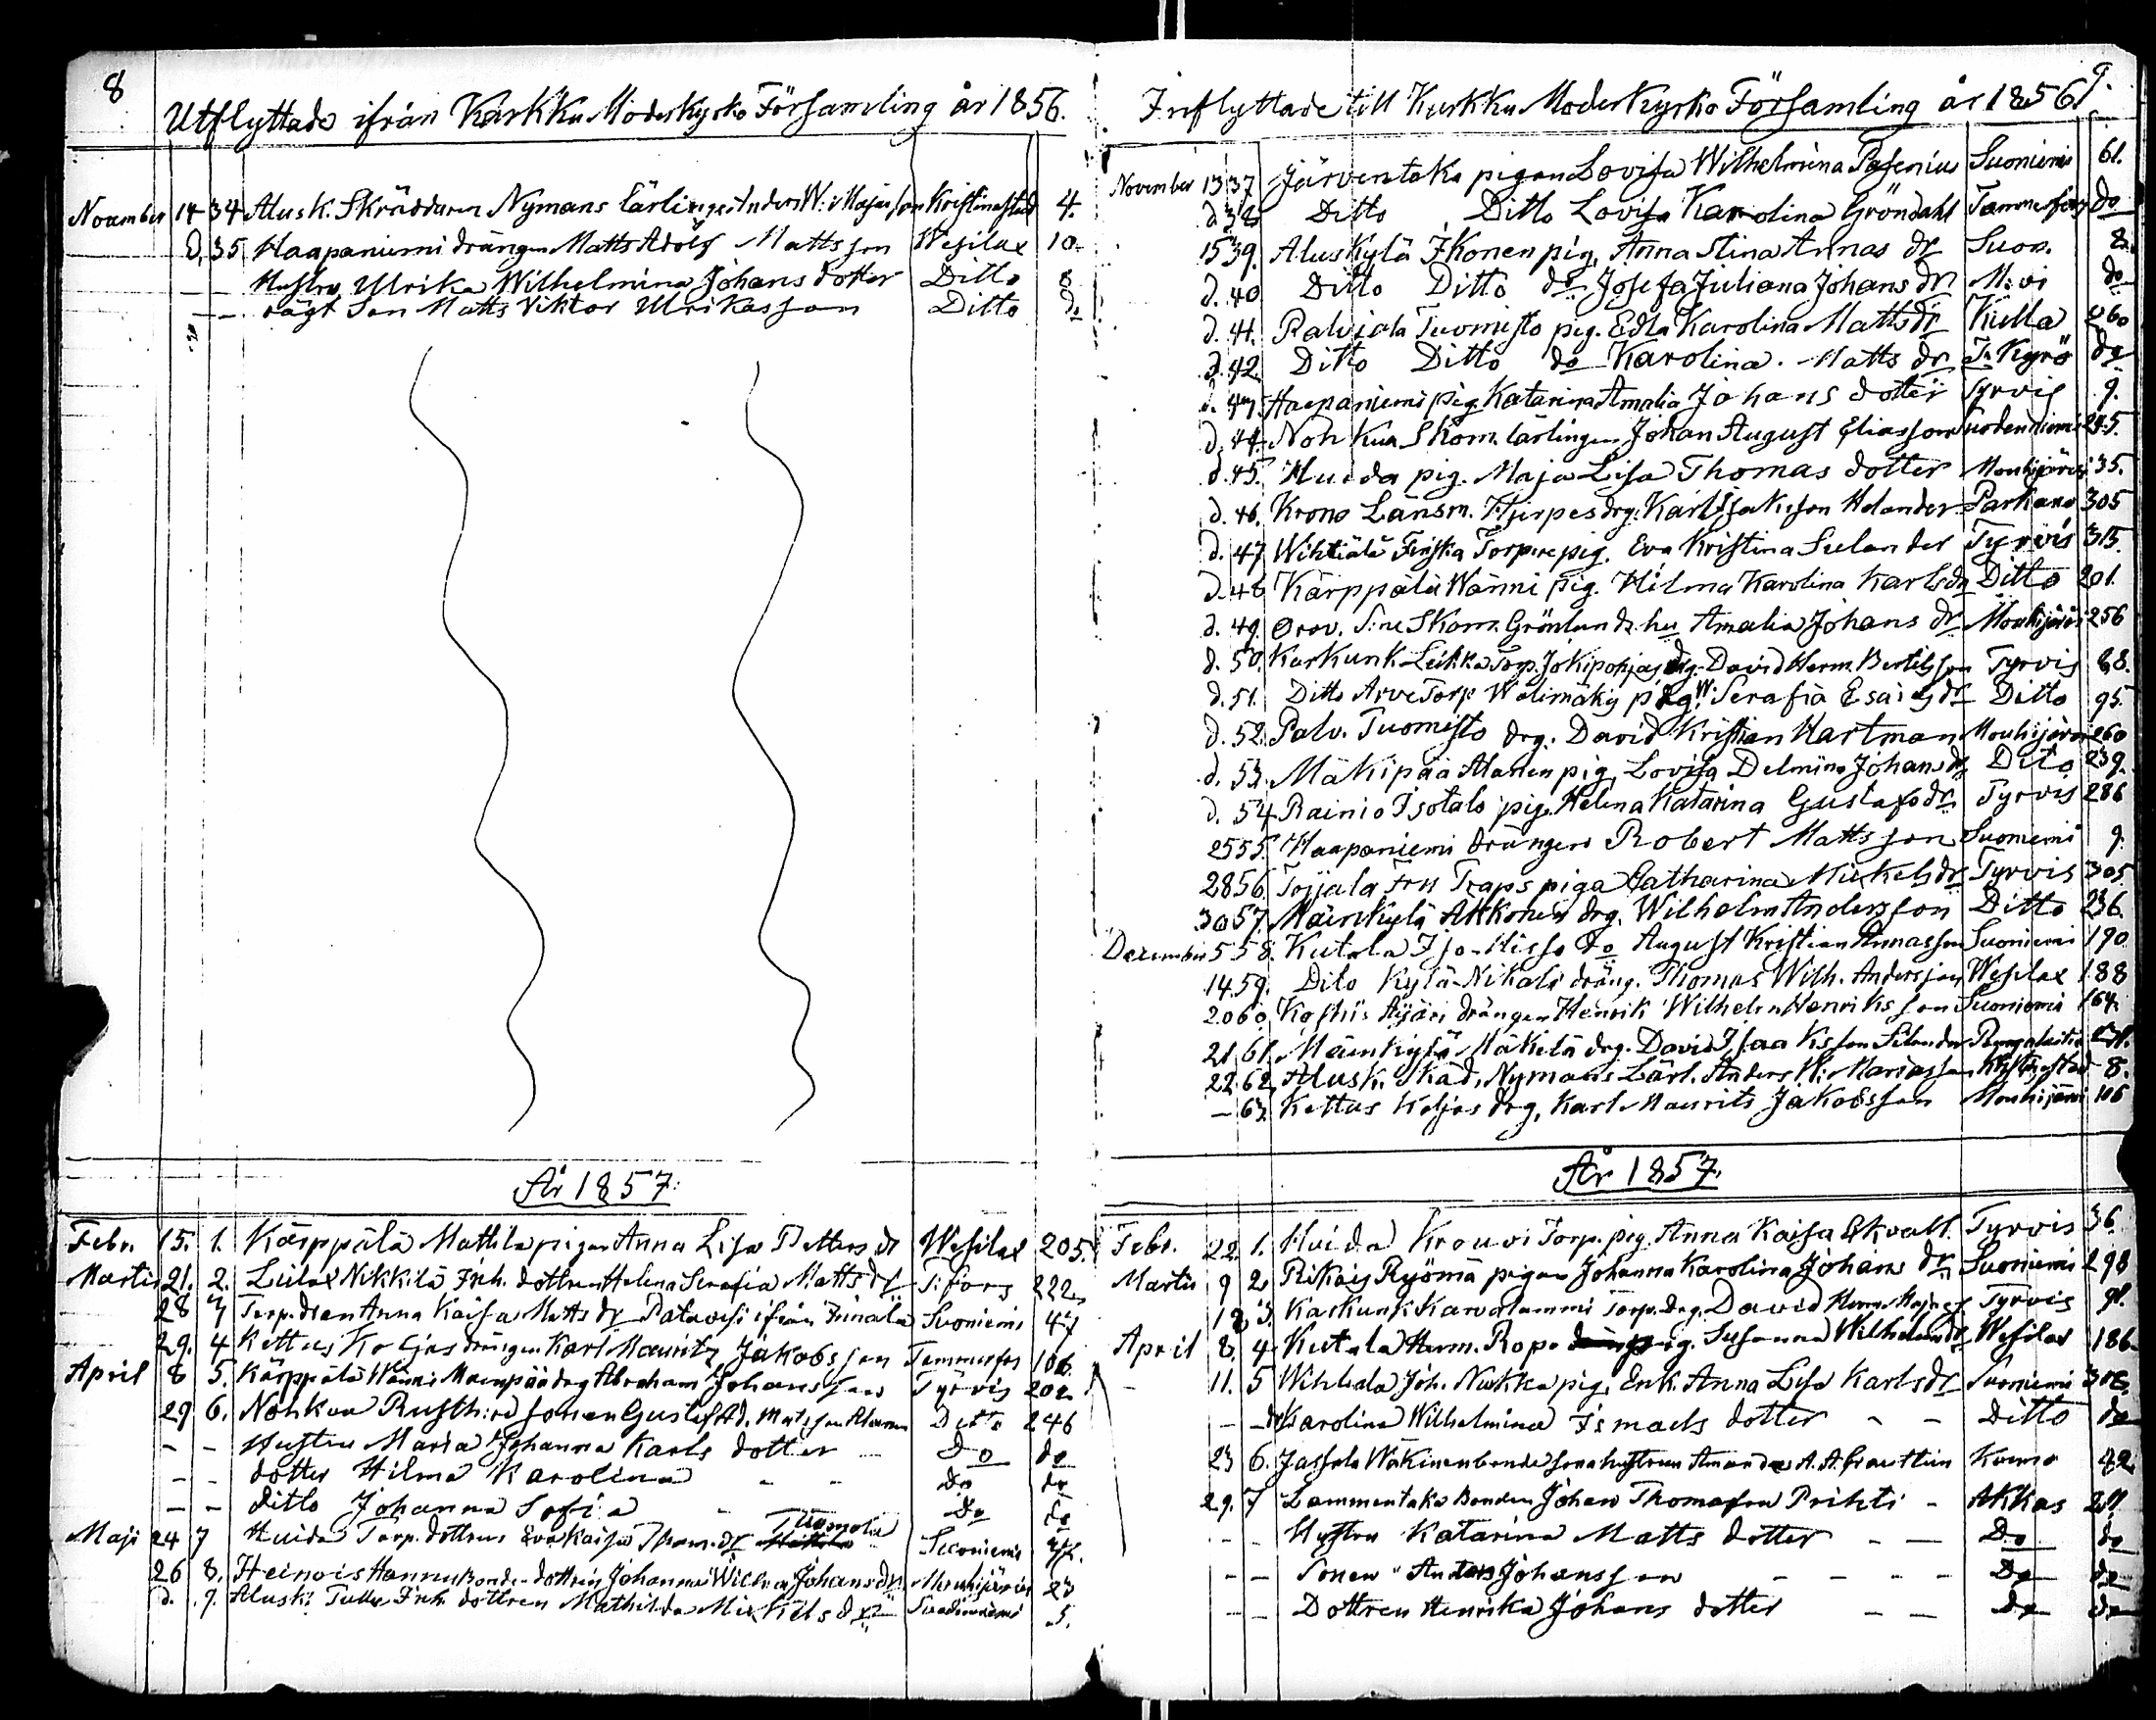 8
Utflyttade ifrån Karkku Moderkyrko Församling år 1856.
November 14 34 Alusk. Skräddaren Nymans Lärlinge Anders W: Majasson Kristinestad 4.
d. 35 Haapaniemi drängen Matts Adolf Mattsson Wesilax 10.
— — Hustru Ulrika Wilhelmina Johans dotter Ditto 8
— — oägt Son Matts Viktor Ulrikasson Ditto do
År 1857.
Febr. 15. 1. Kärppälä Mattila pigan Anna Lisa Petters dr Wesilax 205.
Martii 21. 2. Leilax Nikkilä Inh. dottren Helena Serafia Matts dr T:fors 222.
28 3 Torp. dren Anna Kaisa Matts dr Palavesi ifrån Innala Suoniemi 47
29. 4 Kettus Koljas drängen Karl Mauritz Jakobsson Tammerfors 106.
April 8 5. Kärppälä Wänni Maenpää drg Abraham Johansson Tyrvis 202.
29 6. Nohkua Rusth: sonen Gustaf Ad. Matsson Ditto 246
– – Hustru Maria Johanna Karls dotter Do do
– – dotter Hilma Karolina – – do do
– – ditto Johanna Sofia – Do do
Maji 24 7 Huida Torp. dottren Eva Kaisa Thom. dr Tuomola Suoniemi
26 8. Heinois Hannu Bonde dottren Johanna Wilhelm. Johans dr. Mouhijärvi 23
d. 9. Alusk. Tulle Inh. dottren Mathilda Mikkels dr Suodenniemi 5.
9.
Inflyttade till Karkku Moderkyrko Församling år 1856
November 13 37 Järventaka pigan Lovisa Wilhelmina Pasenius Suoniemi 61.
d 38 Ditto Ditto Lovisa Karolina Gröndahl Tammerfors do
15 39. Aluskylä Ikonen pig. Anna Stina Annas dr Suon. 8.
d. 40 Ditto Ditto do Josefa Juliana Johans dr M:vi do
d. 41. Palviala Tuomisto pig. Edla Karolina Matts dr Kulla 260
d. 42 Ditto Ditto do Karolina Matts dr T. Kyrö do
d. 43 Haapaniemi pig. Katarina Amalia Johans dotter Tyrvis 9.
d. 44. Nohkua Skom. lärlingen Johan August Eliasson Suodenniemi 245.
d. 45. Huida pig. Maja Lisa Thomas dotter Mouhijärvi 35.
d. 46. Krono Länsm. Hjerpes drg. Karl Isaksson Helander Parkano 305
d. 47 Wihtiälä Finska Torpare pig. Eva Kristina Sulander Tyrvis 315.
d. 48 Kärppälä Wänni pig. Hilma Karolina Karls dr Ditto 201.
d. 49. Orov. S:ne Skom. Grönlunds hu Amalia Johans dr Mouhijärvi 256
d. 50. Karkunk. Leikka Torp. Jokipohjas drg. David Herm. Bertilsson Tyrvis 88.
d. 51. Ditto Arve Torp. Wälimäky pig. W. Serafia Esaias dr Ditto 95.
d. 52. Palv. Tuomisto drg. David Kristian Hartman Mouhijärvi 260
d. 53. Mäkipää Alanen pig. Lovisa Delmina Johans dr Ditto 239.
d. 54 Rainio Isotalo pig. Helena Katarina Gustafs dr. Tyrvis 286
25 55. Haapaniemi drängen Robert Mattsson Suoniemi 9.
28 56. Tojjala Fru Traps piga Catharina Mickels dr Tyrvis 305.
30 57. Mäenkylä Akkonen drg. Wilhelm Andersson Ditto 236.
December 5 58. Kutala Iso-Hisso do August Kristian Annasson Suoniemi 190
14. 59. Dito Kylä-Nikala dräng. Thomas Wilh. Andersson Wesilax 188
20 60. Koskis Äijäri drängen Henrik Wilhelm Henriksson Suoniemi 164.
21 61. Mäenkylä Mäkelä drg. David Isaaksson Silander
22 62. Alusk. Skräd. Nymans Lärl. Anders W: Mariasson Kristinestad 8.
— 63. Kettus Koljas drg. Karl Maurits Jakobsson Mouhijärvi 106
År 1857.
Febr. 22. 1. Huida Krouvi Torp. pig. Anna Kaisa Ekvall. Tyrvis 36.
Martii 9 2 Rikais Ryömä pigan Johanna Karolina Johans dr Suoniemi 298
18 3. Karkunk. Karvalammi Torp. drg. David Herm. Tyrvis 91.
April 8. 4 Kutala Herm. Ropo pig. Susanna Wilhelm dr Wesilax 186
– 11. 5 Wihtiala Joh. Nukka pig. Enk. Anna Lisa Karls dr Suoniemi 306
– – dr Karolina Wilhelmina Ismaels dotter – – Ditto do
23 6. Jassala Wäkinen bonde sona hustrun Amanda A. A. Kumo 42
29. 7 Lammentaka Bonden Johan Thomasson Prihti – Akkas 29
– – Hustru Katarina Matts dotter – — Do do
– – Sonen Anders Johansson – – – – Do do
– – Dottren Henrika Johans dotter – — do do